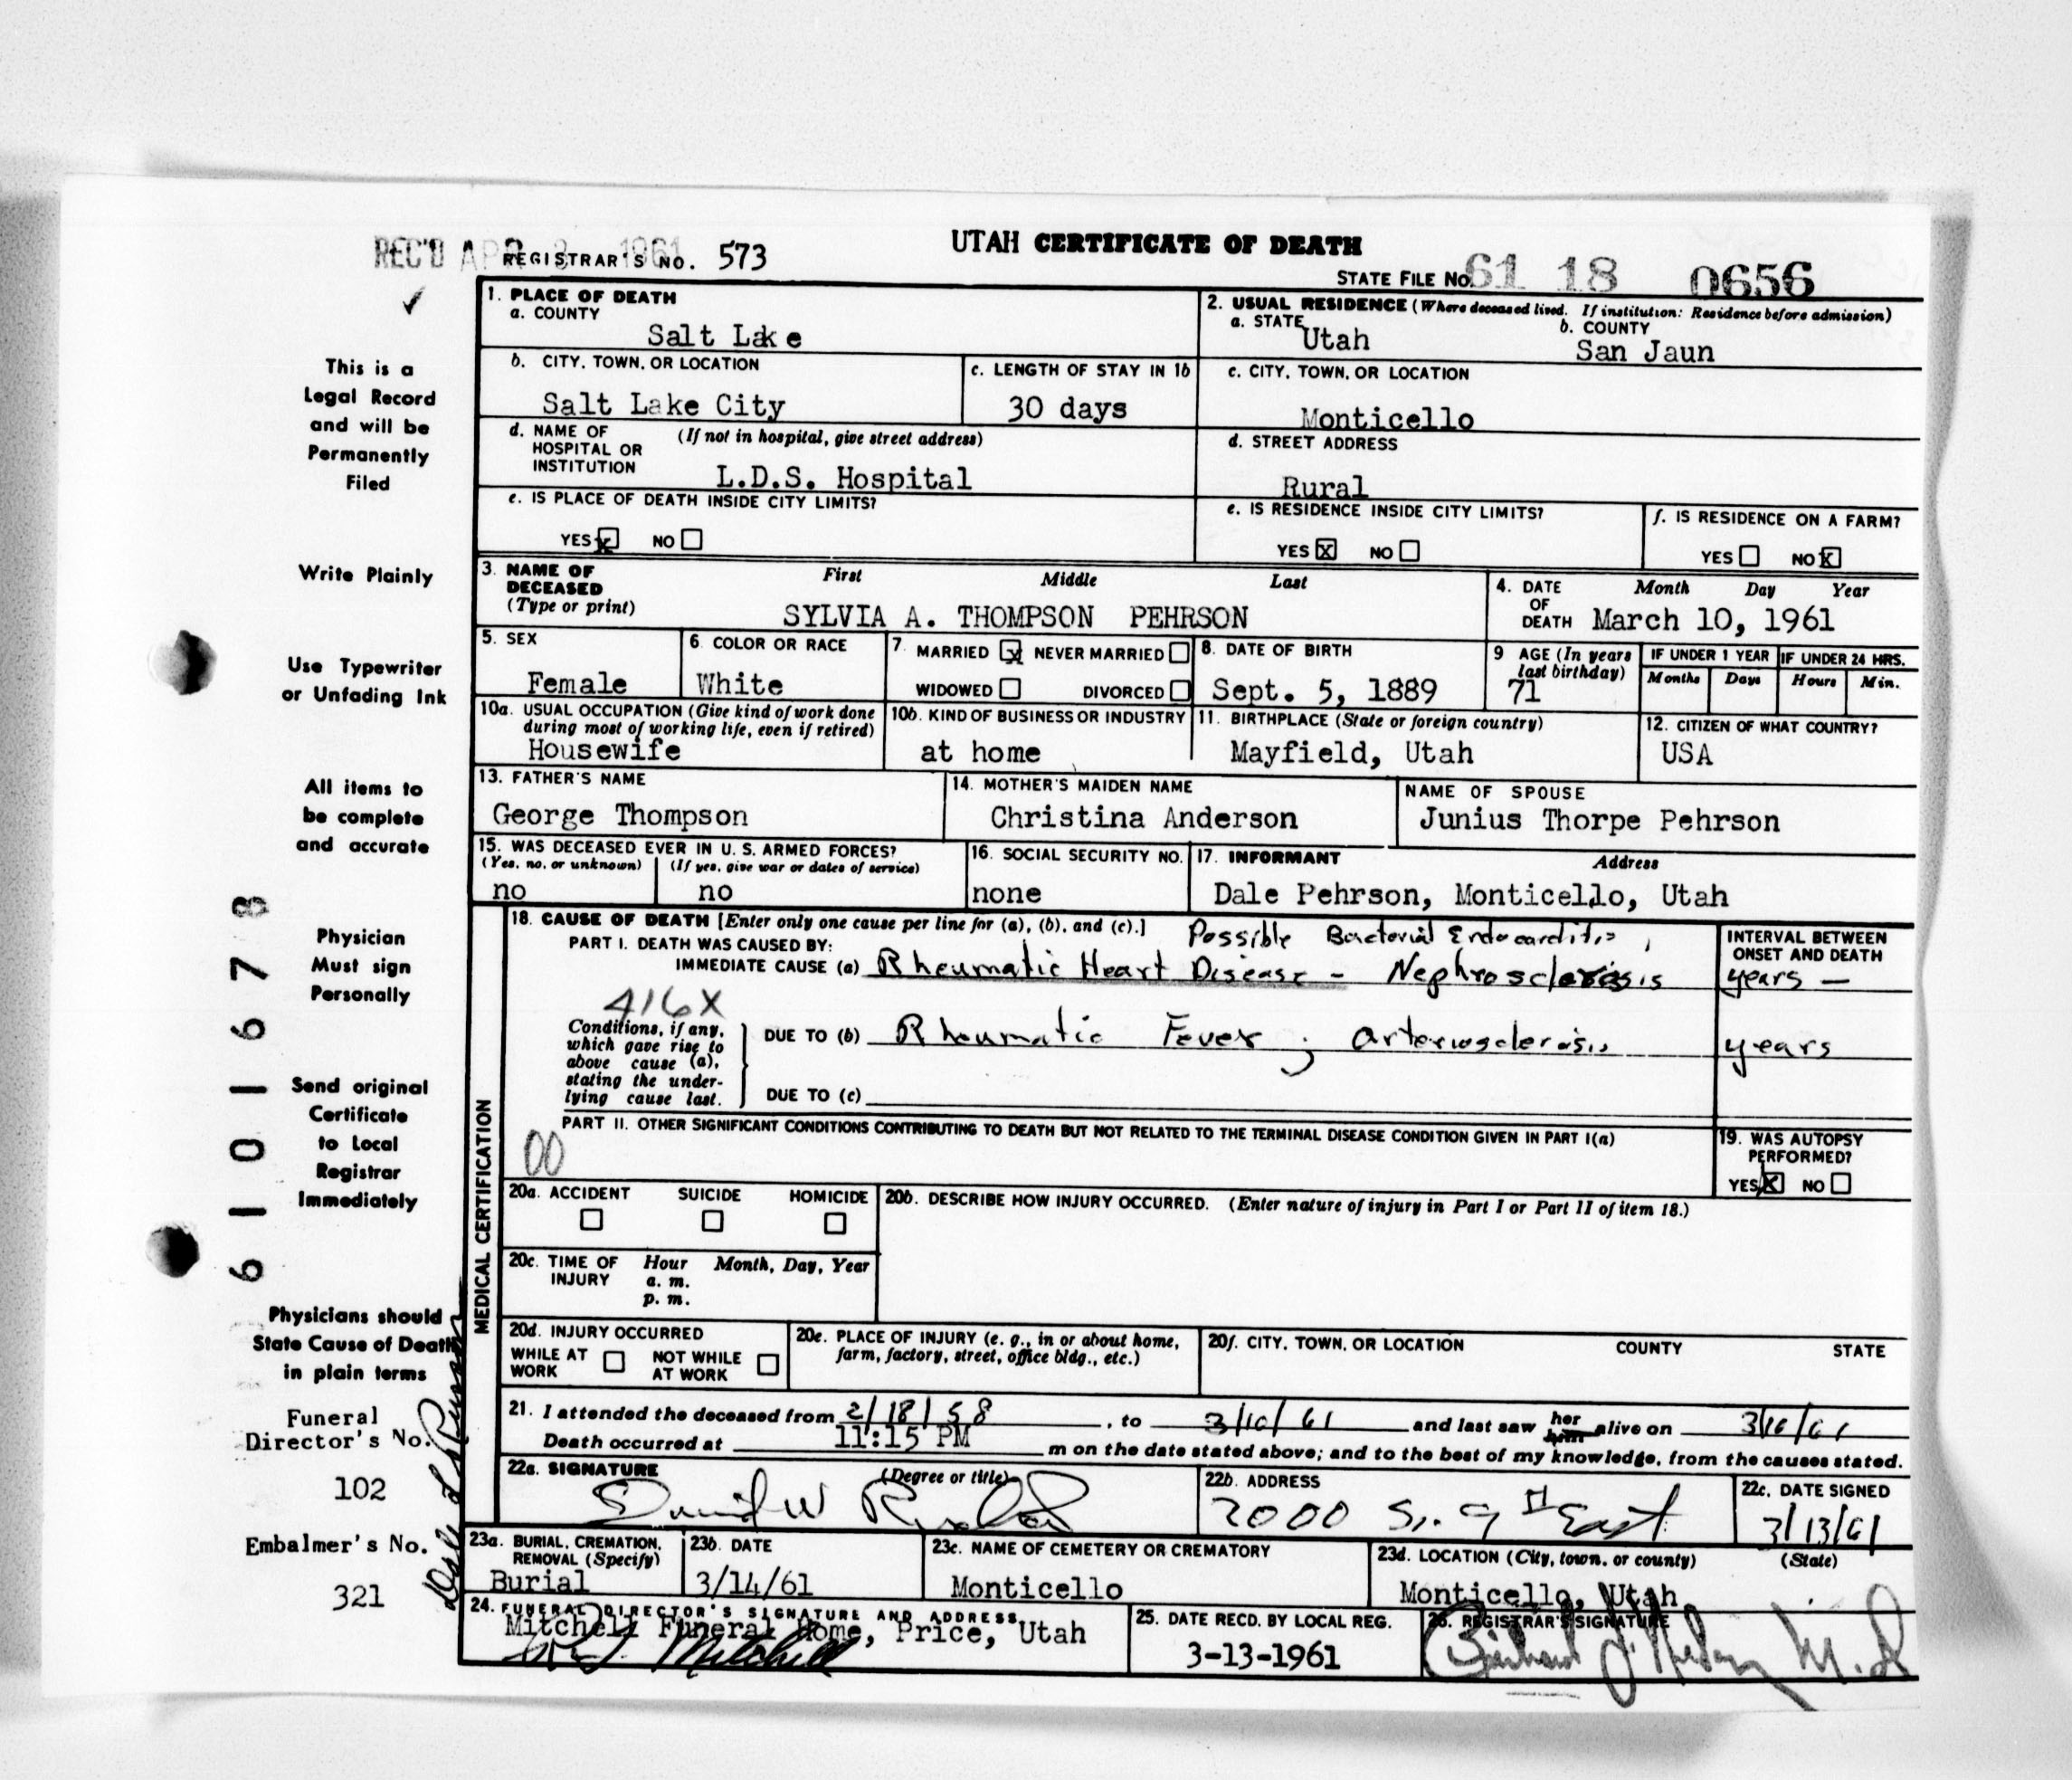 UTAH CERTIFICATE OF DEATH
REC'D APR 3 1961
REGISTRAR'S NO. 573
STATE FILE No. 61 18 0656
✓
This is a
Legal Record
and will be
Permanently
Filed
Write Plainly
Use Typewriter
or Unfading Ink
All items to
be complete
and accurate
Physician
Must sign
Personally
Send original
Certificate
to Local
Registrar
Immediately
Physicians should
State Cause of Death
in plain terms
Funeral
Director's No.
102
Embalmer's No.
321
6101678
1. PLACE OF DEATH
a. COUNTY
Salt Lake
2. USUAL RESIDENCE (Where deceased lived. If institution: Residence before admission)
a. STATE Utah
b. COUNTY
San Jaun
b. CITY, TOWN, OR LOCATION
Salt Lake City
c. LENGTH OF STAY IN 1b
30 days
c. CITY, TOWN, OR LOCATION
Monticello
d. NAME OF HOSPITAL OR INSTITUTION (If not in hospital, give street address)
L.D.S. Hospital
d. STREET ADDRESS
Rural
e. IS PLACE OF DEATH INSIDE CITY LIMITS?
YES x NO
e. IS RESIDENCE INSIDE CITY LIMITS?
YES x NO
f. IS RESIDENCE ON A FARM?
YES NO x
3. NAME OF DECEASED (Type or print)
First Middle Last
SYLVIA A. THOMPSON PEHRSON
4. DATE OF DEATH Month Day Year
March 10, 1961
5. SEX
Female
6. COLOR OR RACE
White
7. MARRIED x NEVER MARRIED
WIDOWED DIVORCED
8. DATE OF BIRTH
Sept. 5, 1889
9 AGE (In years last birthday)
71
IF UNDER 1 YEAR
Months Days
IF UNDER 24 HRS.
Hours Min.
10a. USUAL OCCUPATION (Give kind of work done during most of working life, even if retired)
Housewife
10b. KIND OF BUSINESS OR INDUSTRY
at home
11. BIRTHPLACE (State or foreign country)
Mayfield, Utah
12. CITIZEN OF WHAT COUNTRY?
USA
13. FATHER'S NAME
George Thompson
14. MOTHER'S MAIDEN NAME
Christina Anderson
NAME OF SPOUSE
Junius Thorpe Pehrson
15. WAS DECEASED EVER IN U. S. ARMED FORCES?
(Yes, no, or unknown) (If yes, give war or dates of service)
no no
16. SOCIAL SECURITY NO.
none
17. INFORMANT Address
Dale Pehrson, Monticello, Utah
MEDICAL CERTIFICATION
18. CAUSE OF DEATH [Enter only one cause per line for (a), (b), and (c).]
PART I. DEATH WAS CAUSED BY:
Possible Bacterial Endocarditis,
IMMEDIATE CAUSE (a) Rheumatic Heart Disease - Nephrosclerosis
INTERVAL BETWEEN ONSET AND DEATH
years —
416X
Conditions, if any, which gave rise to above cause (a), stating the underlying cause last.
DUE TO (b) Rheumatic Fever ; Arteriosclerosis
years
DUE TO (c)
PART II. OTHER SIGNIFICANT CONDITIONS CONTRIBUTING TO DEATH BUT NOT RELATED TO THE TERMINAL DISEASE CONDITION GIVEN IN PART I(a)
00
19. WAS AUTOPSY PERFORMED?
YES x NO
20a. ACCIDENT SUICIDE HOMICIDE
20b. DESCRIBE HOW INJURY OCCURRED. (Enter nature of injury in Part I or Part II of item 18.)
20c. TIME OF INJURY Hour Month, Day, Year
a. m.
p. m.
20d. INJURY OCCURRED
WHILE AT WORK NOT WHILE AT WORK
20e. PLACE OF INJURY (e. g., in or about home, farm, factory, street, office bldg., etc.)
20f. CITY, TOWN, OR LOCATION COUNTY STATE
21. I attended the deceased from 2/18/58, to 3/10/61 and last saw her him alive on 3/10/61
Death occurred at 11:15 PM m on the date stated above; and to the best of my knowledge, from the causes stated.
22a. SIGNATURE (Degree or title)
22b. ADDRESS
2000 So. 9th East
22c. DATE SIGNED
3/13/61
23a. BURIAL, CREMATION, REMOVAL (Specify)
Burial
23b. DATE
3/14/61
23c. NAME OF CEMETERY OR CREMATORY
Monticello
23d. LOCATION (City, town, or county) (State)
Monticello, Utah
24. FUNERAL DIRECTOR'S SIGNATURE AND ADDRESS
Mitchell Funeral Home, Price, Utah
Mitchell
25. DATE RECD. BY LOCAL REG.
3-13-1961
26. REGISTRAR'S SIGNATURE